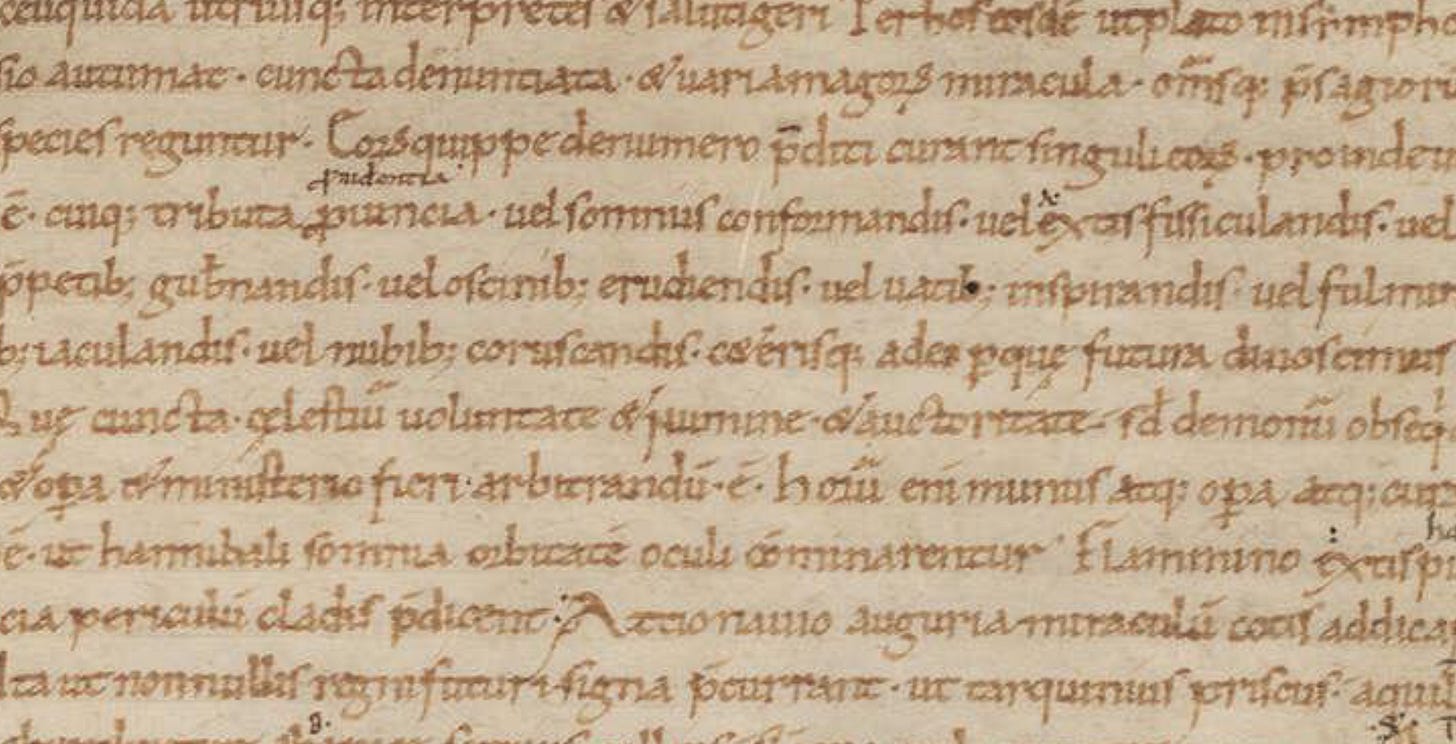 utriusq; interpretes & salutigeri Per hos eosdē ut plato in simph
sio autumat · cuncta denuntiata · & uaria magorꝝ miracula · om̄sq; p̄sagior
species reguntur · Eorꝝ quippe de numero p̄diti curant singuli eorꝝ · proinde u
ꝓuidentia
ē · cuiq; tributa ꝓuincia · uel somniis conformandis · uel extis fissiculandis · uel
p̄petib; gub̄nandis · uel oscinib; erudiendis · uel uatib; inspirandis · uel fulmin
b; iaculandis · uel nubib; coruscandis · c&erisq; adeo ꝑ quę futura dinoscimus
Quę cuncta · cęlestiū uoluntate & numine · & auctoritate · sd̄ demonū obseq
& oꝑa & ministerio fieri arbitrandū · ē · hoıū eni munus atq; oꝑa atq; cur
ē · ut hannibali somnia orbitatē oculi cōminarentur Flaminino extispi
cia periculū cladis p̄dicent · Attio nauio auguria miraculū cotis addica
ut nonnullis regni futuri signa p̄currant · ut tarquinius priscus · aquil